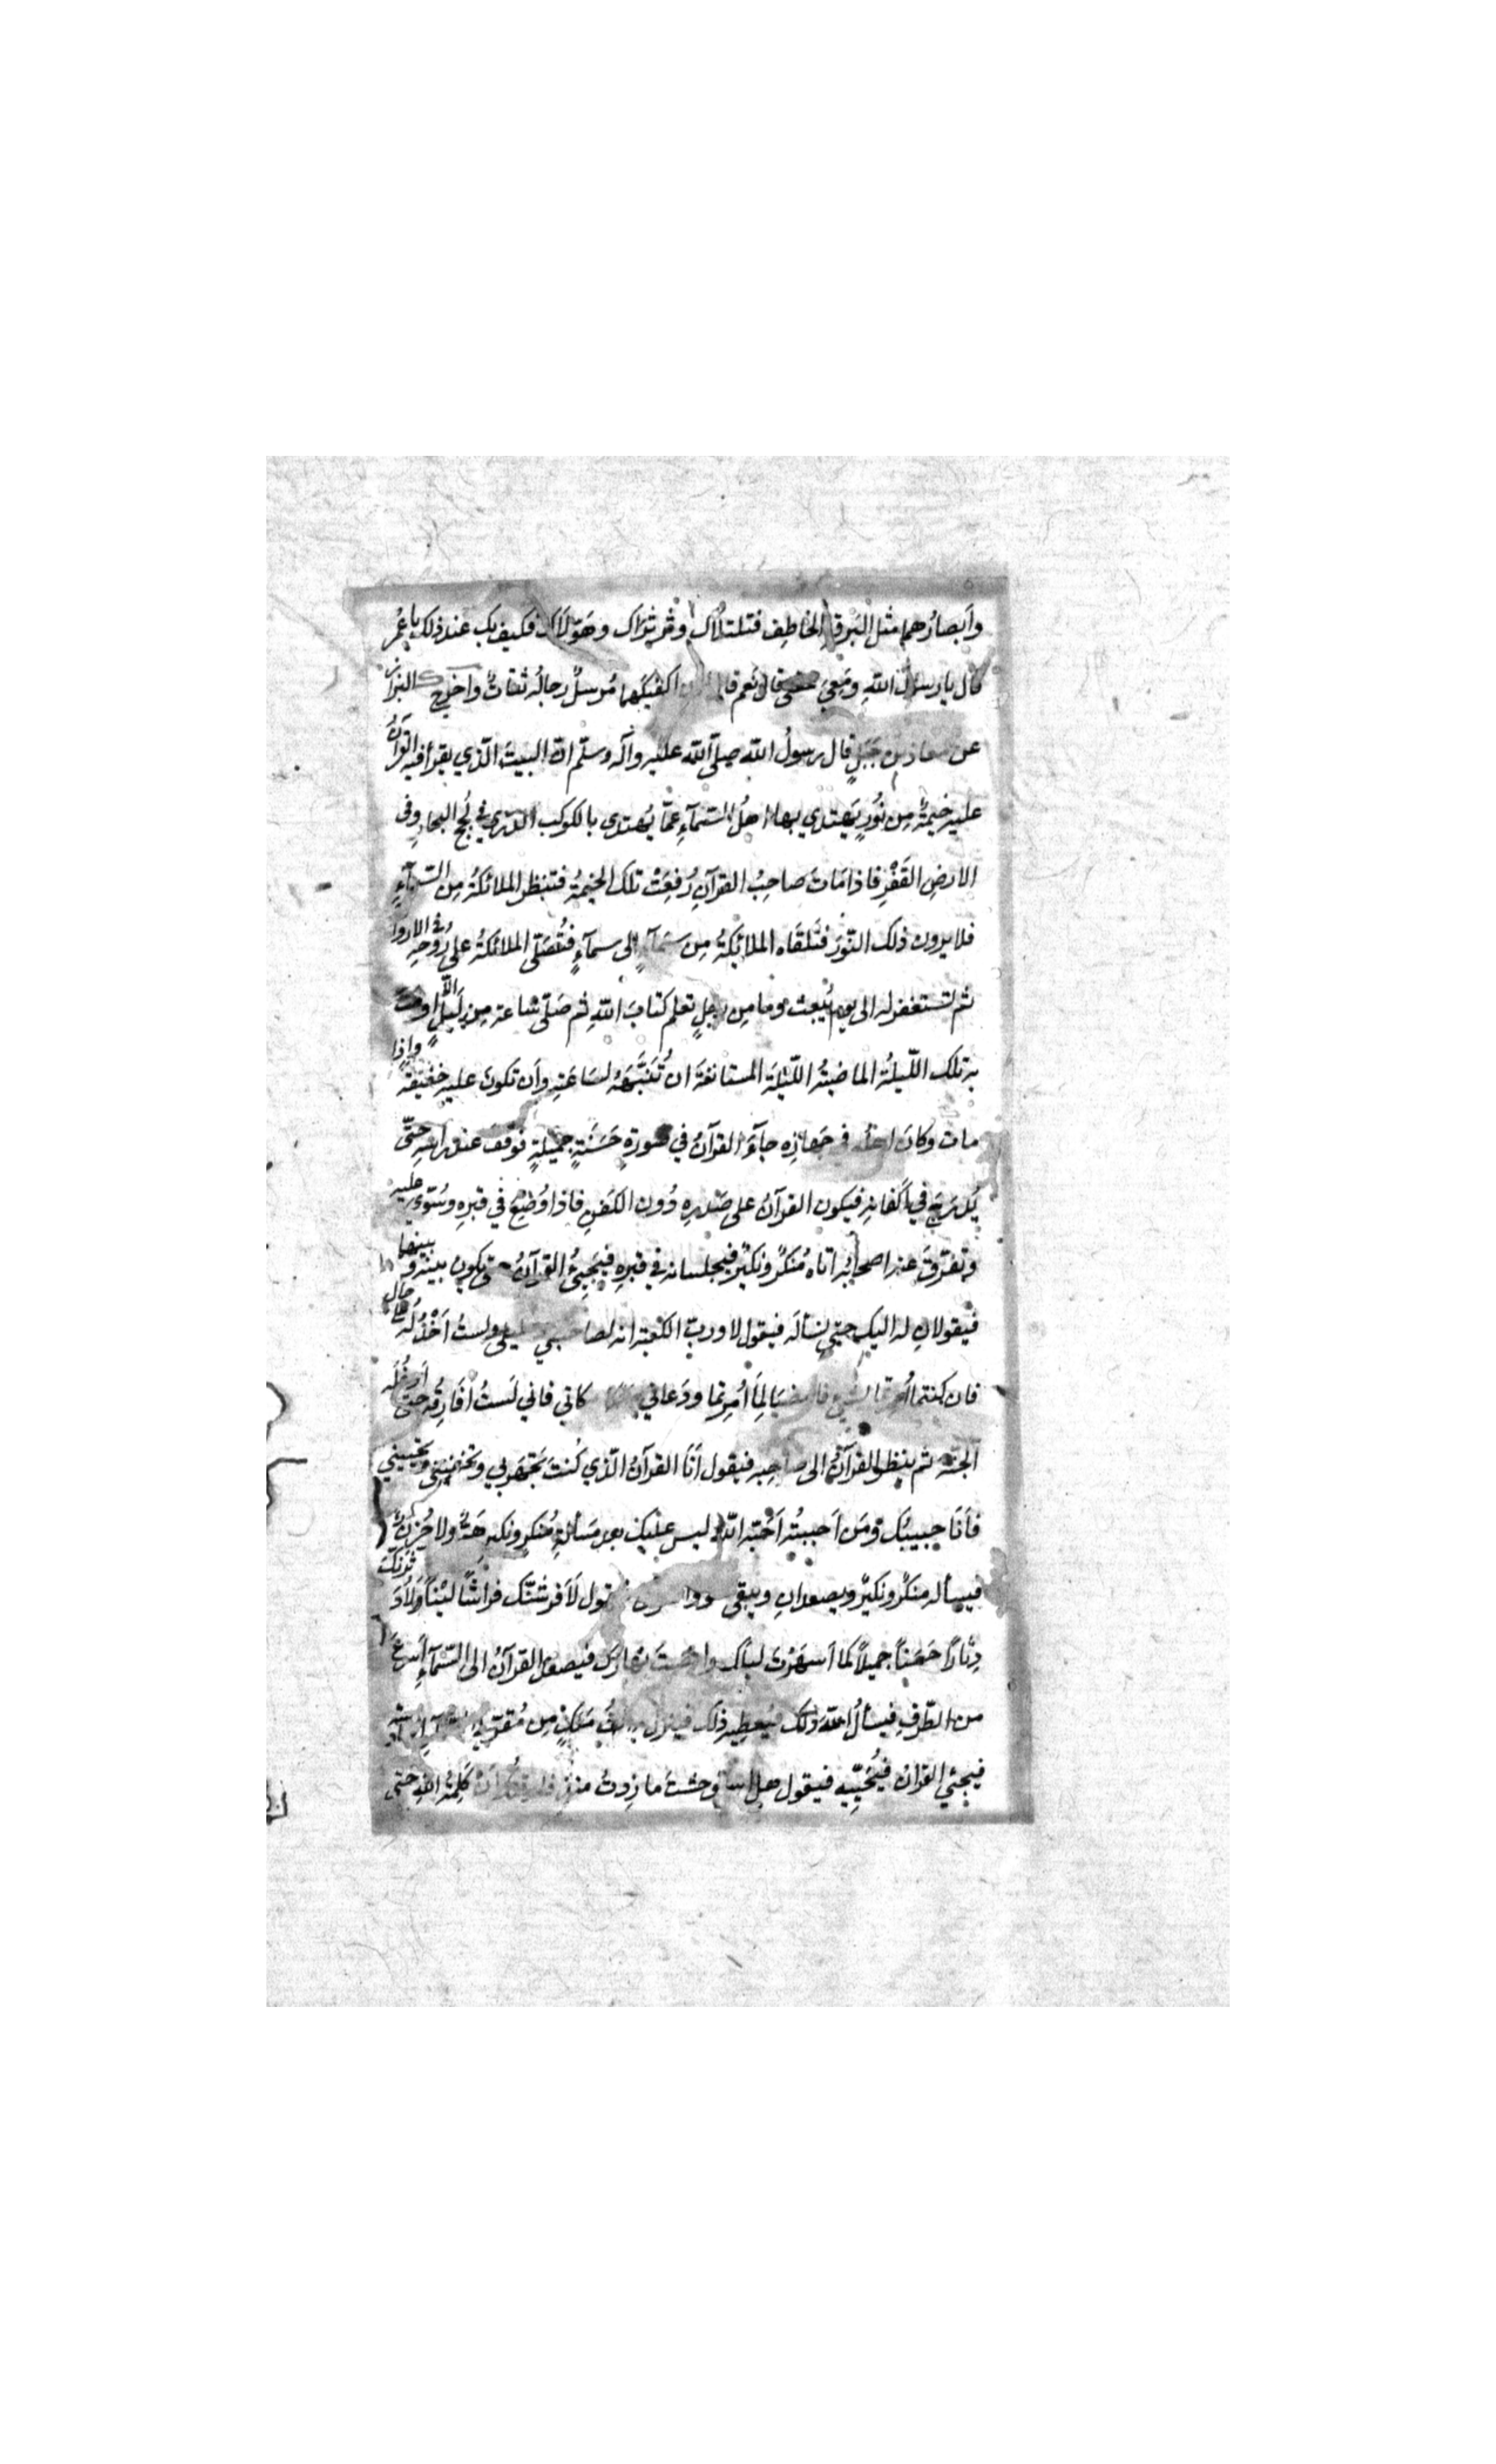 وأَبصارُهما مثل البَرقِ الخاطِف فتلتلاك وثرثراك وهَوّلاك فكيف بك عند ذلك يا عُمرُ
قال يا رسولَ اللهِ ومَعِي عقلي قال نَعم قال اكفيكَهما مُرسلٌ رجالُه ثقاتٌ واخرج البزار
عن معاذ بن جَبَلٍ قال رسولُ الله صلّى الله عليه وآله وسلّم انّ البيتَ الّذي يقرأ فيه القرآنُ
عليه خيمةٌ مِن نُورٍ يَهتدي بها اهلُ السّمآءِ عمّا يُهتدى بالكوكب الدرّي في لُجج البحارِ وفى
الارضِ القَفْرِ فاذا مَاتَ صاحِبُ القرآنِ رُفِعَتْ تلك الخيمةُ فتنظر الملائكةُ مِن السّمآءِ
فلا يرون ذلك النّورَ فتَلقَاه الملائكةُ مِن سَمآءٍ الى سمآءٍ فتُصَلّى الملائكةُ على رُوحِه في الاروا
ثم تستغفر له الى يوم يُبعث وما مِن رجلٍ تعلم كتابَ اللهِ ثم صَلّى ساعة مِن لَيلٍ الاّ اوصَتْ
به تلك اللّيلةُ الماضيةُ اللّيلةَ المستانفةَ ان تُنَبّهَهُ لسَاعَتِه وأَن تكونَ عليه خفيفة واذا
مات وكانَ اهلُه في جَهازِه جآءَ القرآنُ في صورةٍ حَسَنَةٍ جميلةٍ فوقف عند رأسِه حتّى
يُدرَجَ في أَكفانِه فيكون القرآنُ على صَدرِه دُون الكفنِ فاذا وُضِعَ في قبرِهِ وسُوّى عليه
وتفرّقَ عنه اصحابُه اتاه مُنكرٌ ونكيرٌ فيجلسانه في قبرِه فيَجِئُ القرآنُ حتّى يكون بينه وبينهما
فيقولانِ له اليك حتى نسأله فيقول لا وربّ الكعبة انه لصاحبي وخليلي ولستُ اَخْذُلُه على حال
فان كنتما أُمرتما بشيءٍ فامضيَا لِمَا أُمِرتما ودَعاني مكاني فاني لَستُ اُفَارِقُه حتى أُدخُلَه
الجنّة ثم ينظر القرآنُ الى صاحِبِه فيقول أَنَا القرآنُ الّذي كُنتَ تَجهَر بي وتخفيني وتحبني
فأَنَا حبيبُك ومَن أَحببتُه أَحَبّه اللهُ ليس عليك بعد مَسألةِ مُنكرٍ ونكيرٍ هَمٌّ ولا حُزنٌ
فيسأله منكرٌ ونكيرٌ ويصعدانِ ويبقى هو والقرآن فيقول لَأَفرشنّك فراشًا ليّنًا ولأدثرنّك
دِثارًا حَسَنًا جميلاً كما أَسهَرْتَ ليلك وانصبتَ نهارك فيصعد القرآنُ الى السّمآءِ أَسرعَ
من الطّرفِ فيسألُ اللهَ ذلك فيُعطِيه ذلك فينزل به الفُ مَلكٍ مِن مُقرّبي السّمآءِ السادسة
فيجئ القرآنُ فيُحيِّيه فيقول هل استوحشتَ ما زِدتُ منذ فارقتُك أَن كَلِمتُ اللهَ حتى